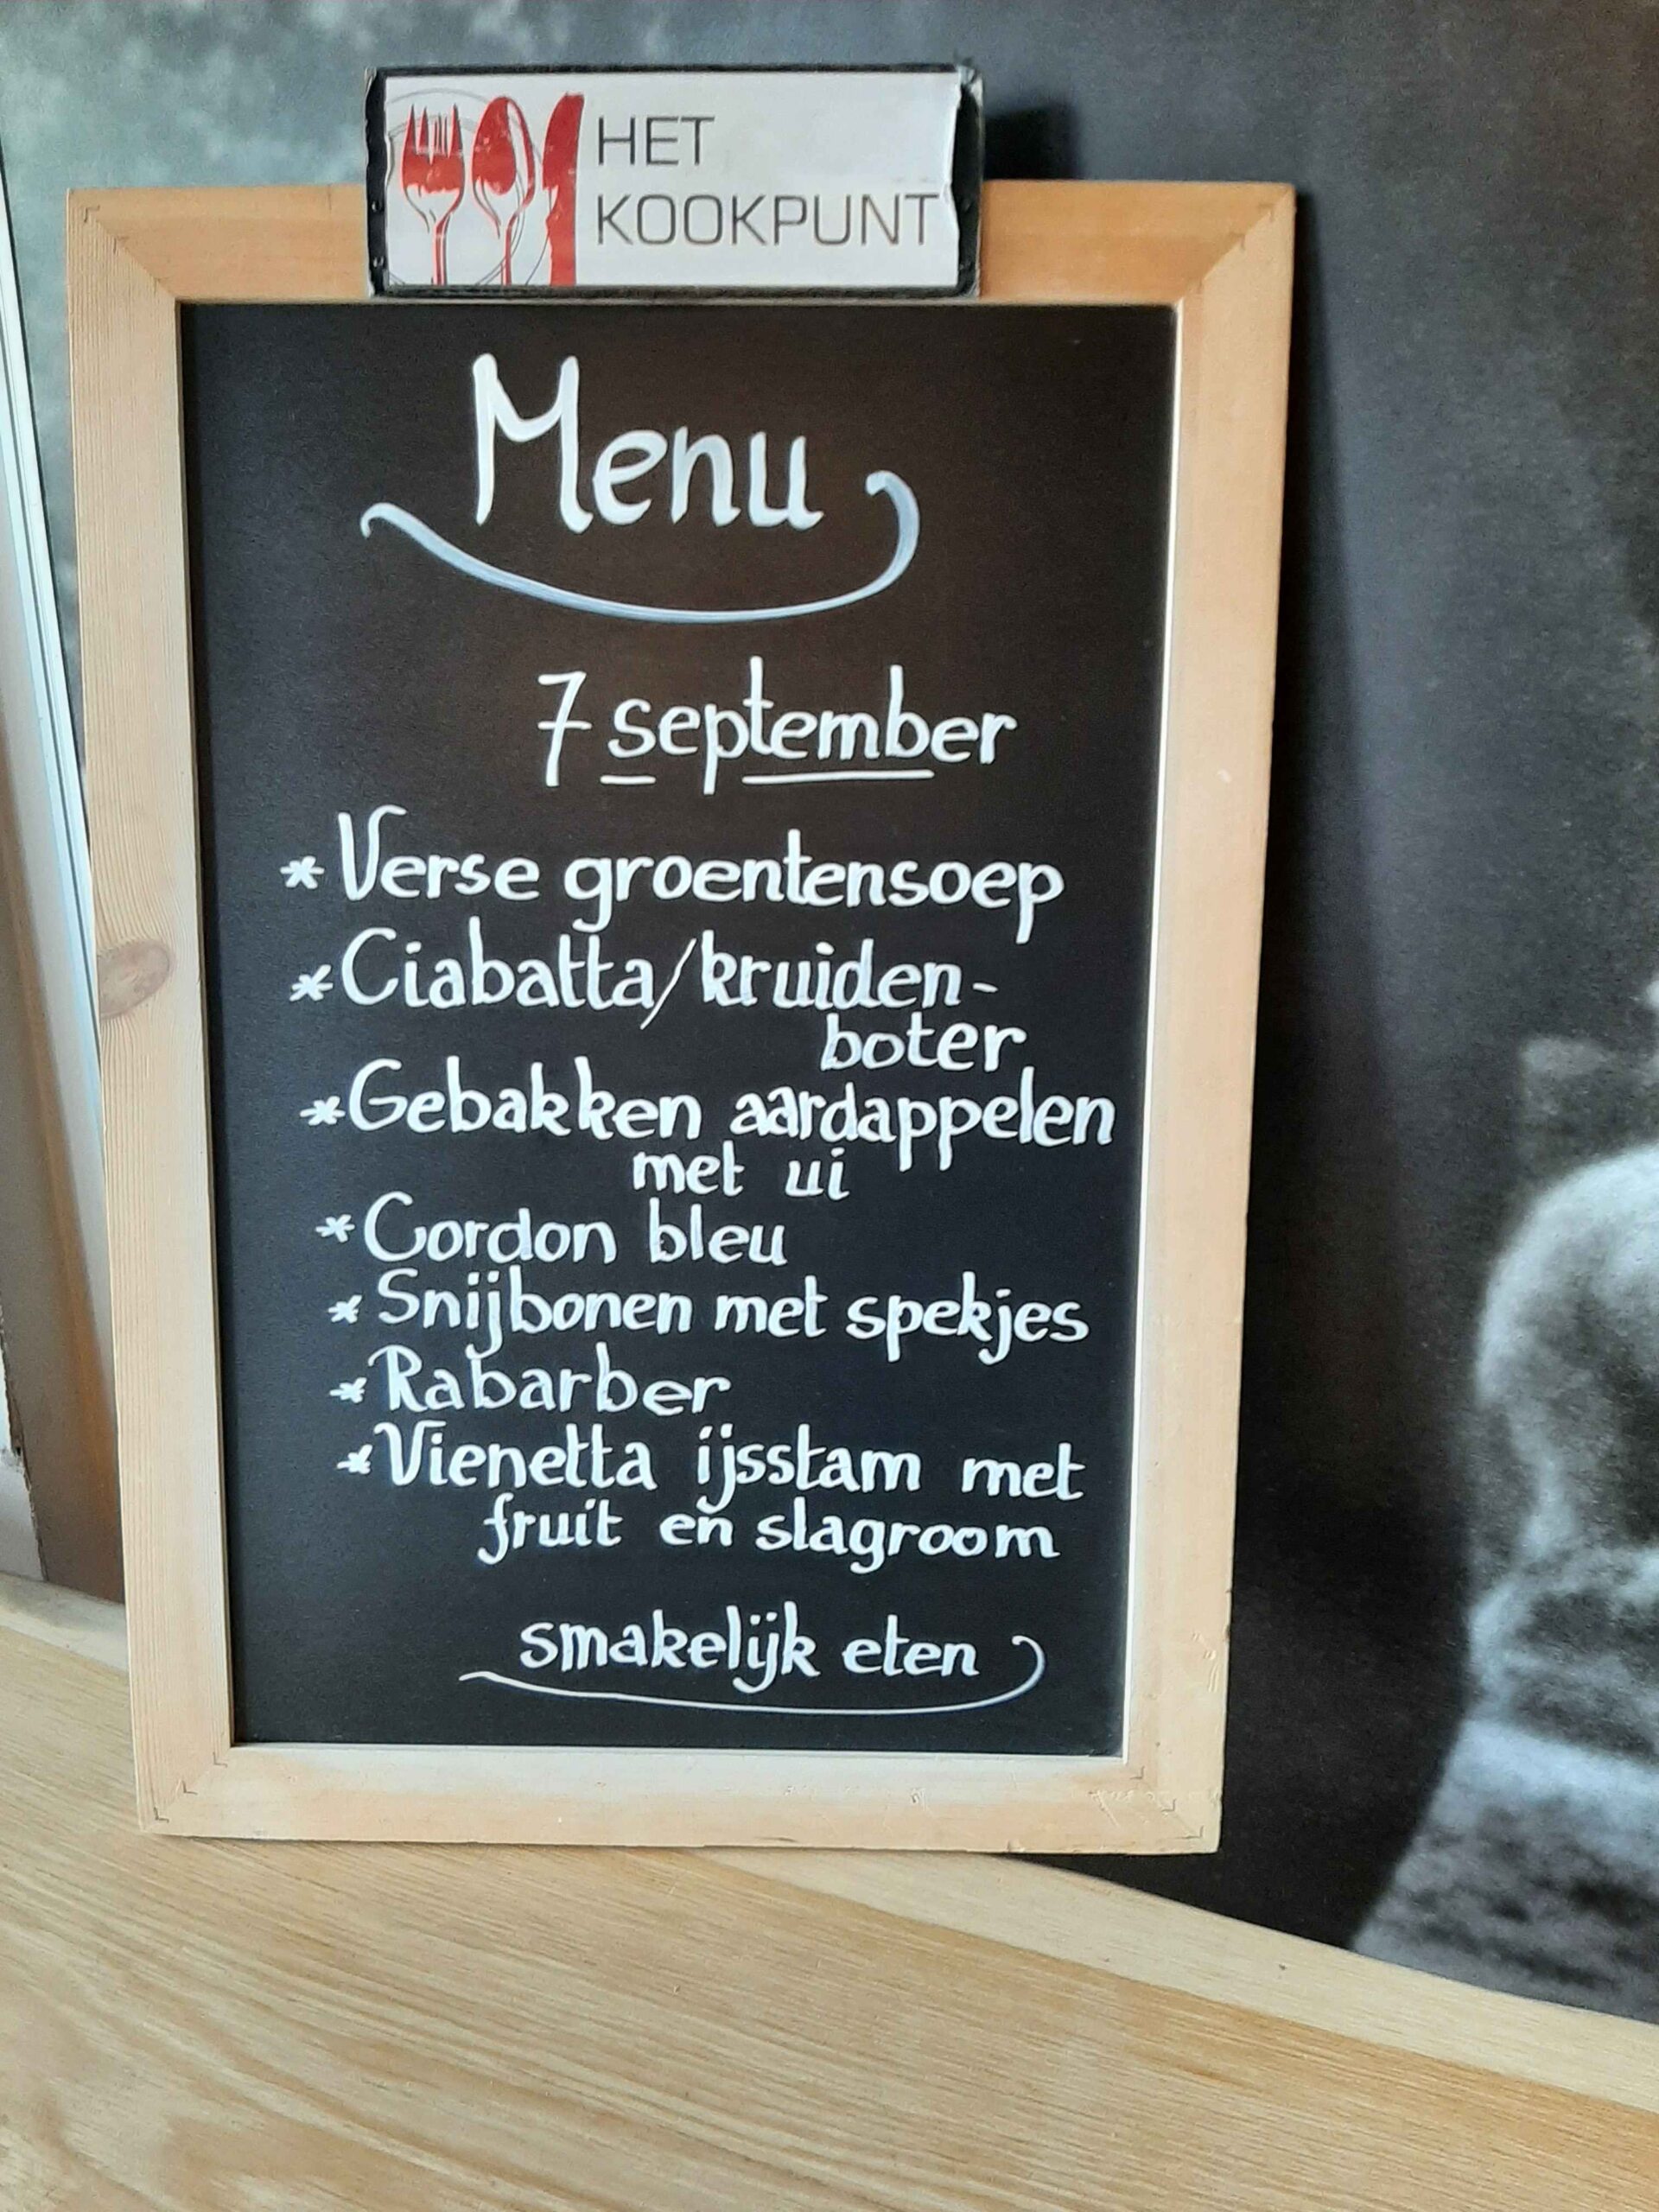 HET
KOOKPUNT
Menu
7 september
* Verse groentensoep
* Ciabatta/kruiden-
boter
* Gebakken aardappelen
met ui
* Cordon bleu
* Snijbonen met spekjes
* Rabarber
* Vienetta ijsstam met
fruit en slagroom
smakelijk eten